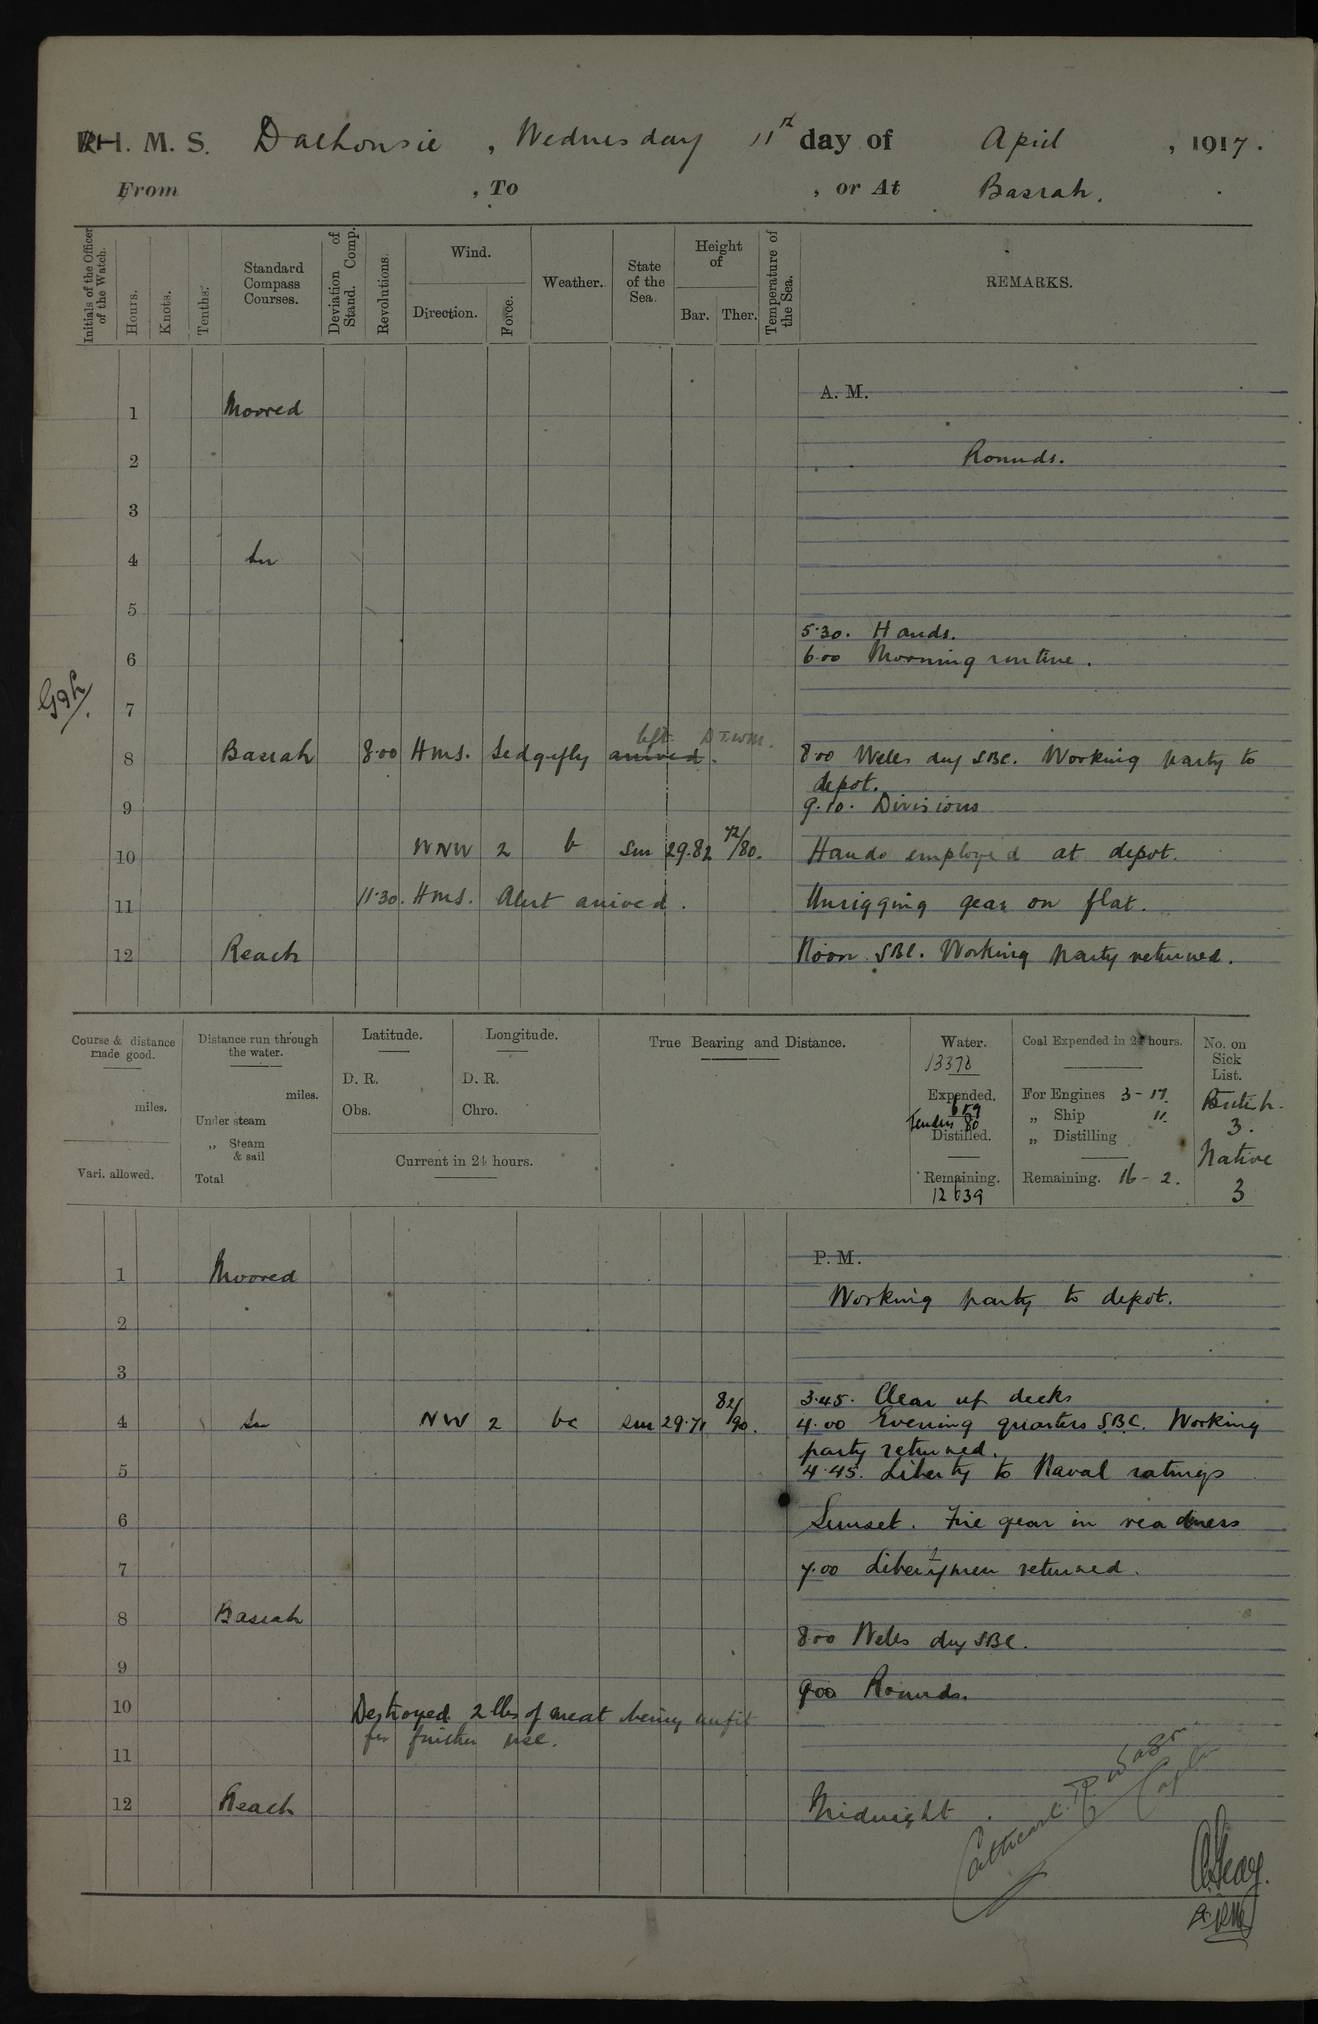 R H. M. S. Dalhousie, Wednesday 11th day of April, 1917.
From , To , or At Basrah.
Initials of the Officer of the Watch.
Hours.
Knots.
Tenths.
Standard Compass Courses.
Deviation of Stand. Comp.
Revolutions.
Wind.
Direction.
Force.
Weather.
State of the Sea.
Height of
Bar. Ther.
Temperature of the Sea.
REMARKS.
A. M.
1 Moored
2 Rounds.
3
4 In
5
5.30. Hands.
6 6.00 Morning routine.
7
left
8 Basrah 8.00 H.M.S. Sedgefly arrived. 8.00 Wells dry SBC. Working party to
depot.
9 9.10. Divisions
10 WNW 2 b Sm 29.82 72/80. Hands employed at depot.
11 11.30. H.M.S. Alert arrived. Unrigging gear on flat.
12 Reach Noon SBC. Working party returned.
Course & distance made good.
miles.
Vari. allowed.
Distance run through the water.
miles.
Under steam
„ Steam & sail
Total
Latitude.
D. R.
Obs.
Longitude.
D. R.
Chro.
Current in 24 hours.
True Bearing and Distance.
Water.
13378
Expended.
659
Tenders 80
Distilled.
Remaining.
12639
Coal Expended in 24 hours.
For Engines 3-17.
„ Ship "
„ Distilling
Remaining. 16-2.
No. on Sick List.
British.
3.
Native
3
P. M.
1 Moored
Working party to depot.
2
3
3.45. Clear up decks
4 In NW 2 bc Sm 29.71 82/90. 4.00 Evening quarters S.B.C. Working
party returned.
5 4.45. Liberty to Naval ratings
6 Sunset. Fire gear in readiness
7 7.00 Libertymen returned.
8 Basrah
8.00 Wells dry SBC.
9 9.00 Rounds.
10 Destroyed 2 lbs of meat being unfit
for further use.
11
12 Reach Midnight.